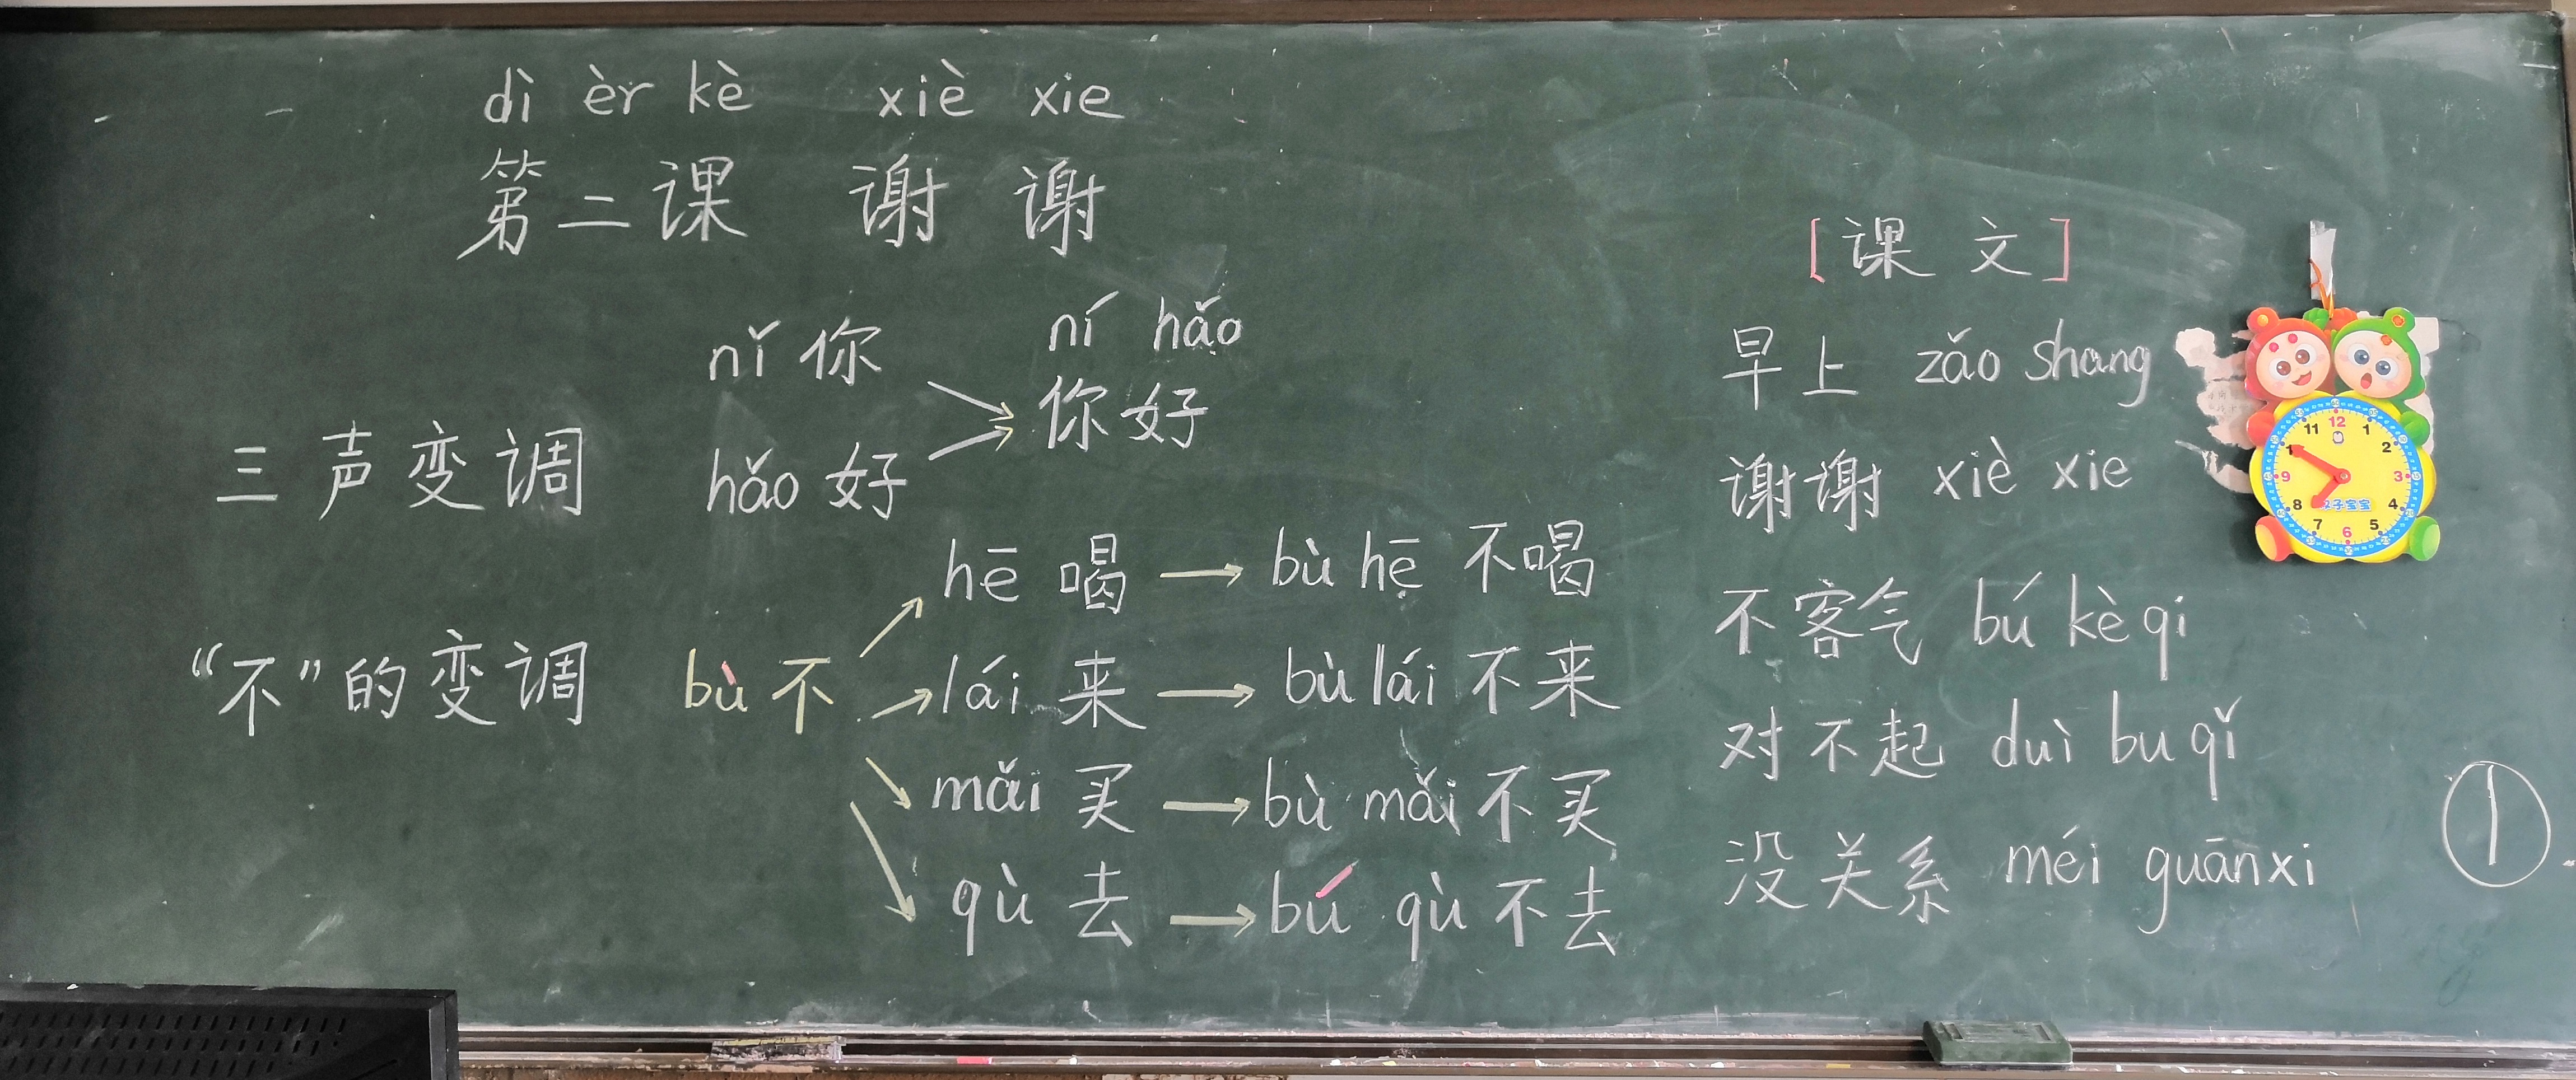 dì èr kè xiè xie
第二课 谢谢
三声变调
nǐ 你
hǎo 好
ní hǎo
你好
“不”的变调
bù 不
hē 喝 → bù hē 不喝
lái 来 → bù lái 不来
mǎi 买 → bù mǎi 不买
qù 去 → bú qù 不去
[课文]
早上 zǎo shang
谢谢 xiè xie
不客气 bú kè qi
对不起 duì bu qǐ
没关系 méi guānxi
①
12
1
2
3
4
5
6
7
8
9
11